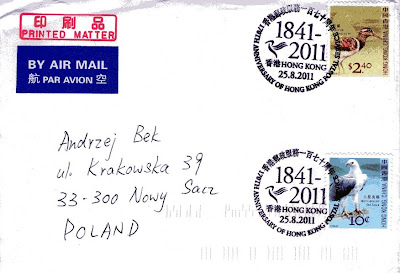 印刷品
PRINTED MATTER
BY AIR MAIL
航 PAR AVION 空
香港郵政服務一百七十周年
1841-
2011
香港 HONG KONG
25.8.2011
170TH ANNIVERSARY OF HONG KONG POSTAL SERVICE
HONG KONG
$2.40
Andrzej Bek
ul. Krakowska 39
33-300 Nowy Sacz
POLAND
香港郵政服務一百七十周年
1841-
2011
香港 HONG KONG
25.8.2011
170TH ANNIVERSARY OF HONG KONG POSTAL SERVICE
HONG KONG
10¢